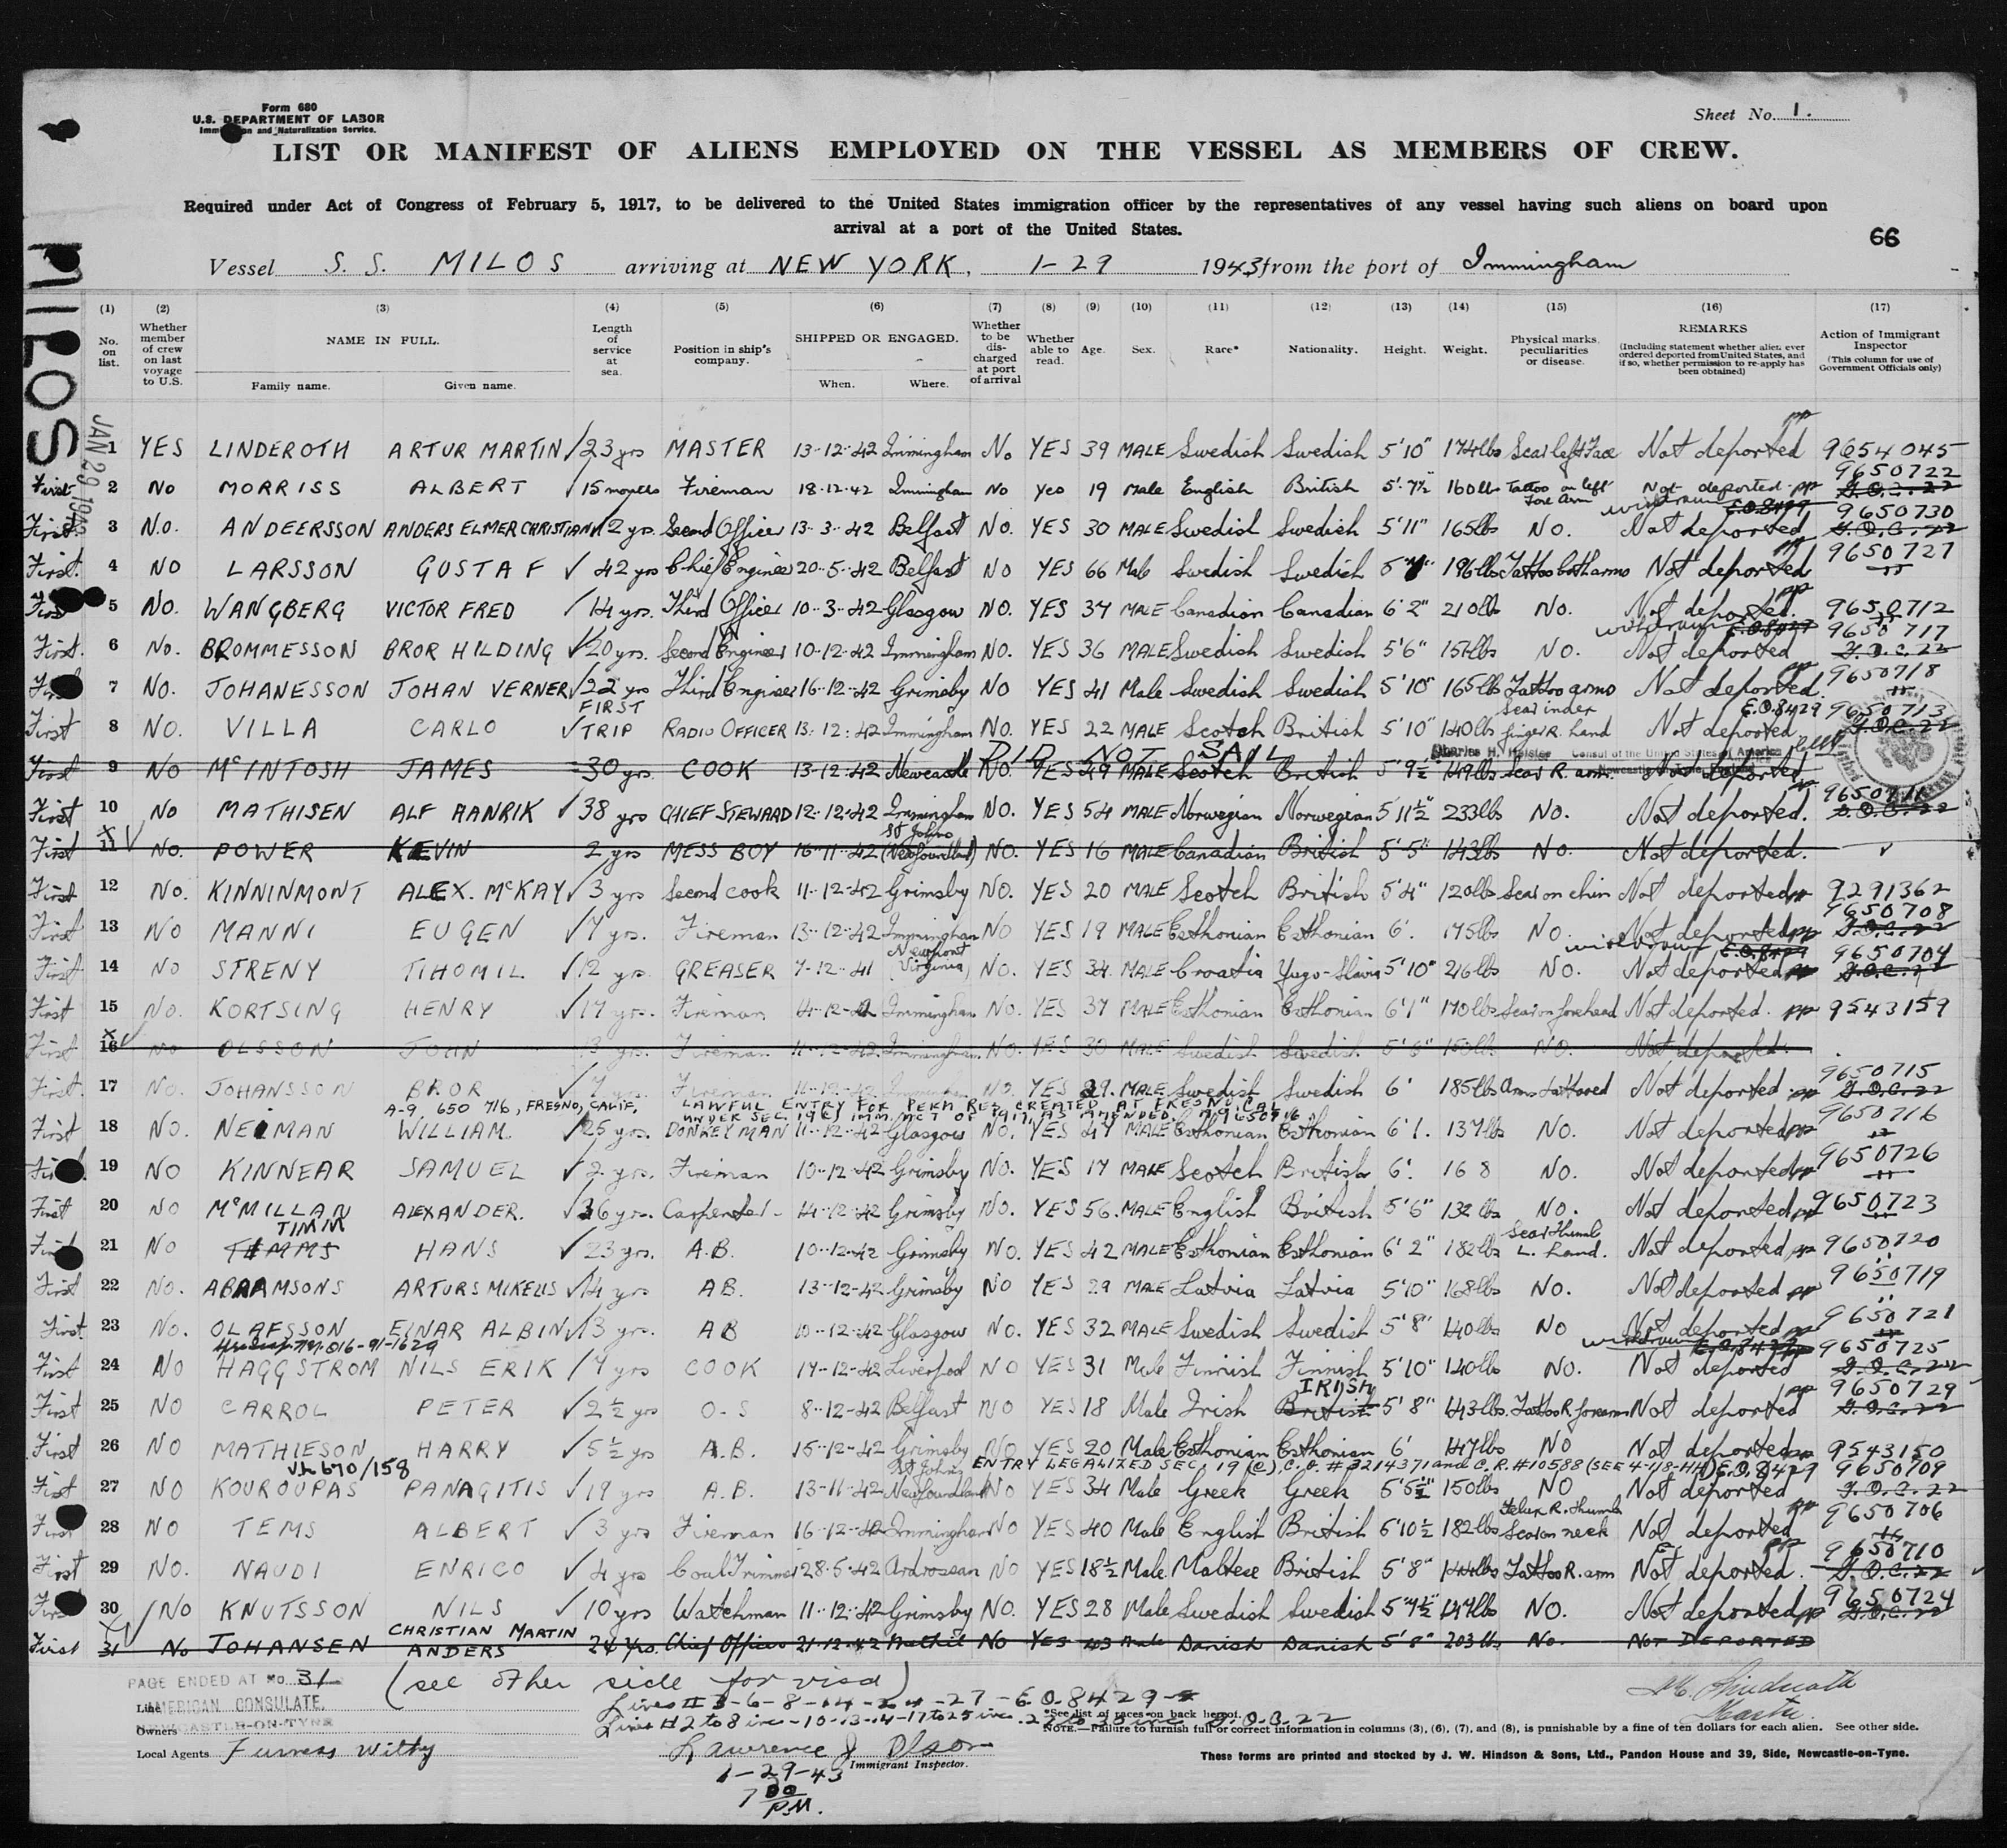 Form 680
U.S. DEPARTMENT OF LABOR
Immigration and Naturalization Service.
Sheet No. 1.
LIST OR MANIFEST OF ALIENS EMPLOYED ON THE VESSEL AS MEMBERS OF CREW.
Required under Act of Congress of February 5, 1917, to be delivered to the United States immigration officer by the representatives of any vessel having such aliens on board upon
arrival at a port of the United States.
66
Vessel S. S. MILOS arriving at NEW YORK, 1-29 1943 from the port of Immingham
MILOS
JAN 29 1943
(1) (2) (3) (4) (5) (6) (7) (8) (9) (10) (11) (12) (13) (14) (15) (16) (17)
No. on list. Whether member of crew on last voyage to U.S. NAME IN FULL. Family name. Given name. Length of service at sea. Position in ship's company. SHIPPED OR ENGAGED. When. Where. Whether to be discharged at port of arrival Whether able to read. Age. Sex. Race* Nationality. Height. Weight. Physical marks, peculiarities or disease. REMARKS (Including statement whether alien ever ordered deported from United States, and if so, whether permission to re-apply has been obtained) Action of Immigrant Inspector (This column for use of Government Officials only)
1 YES LINDEROTH ARTUR MARTIN 23 yrs MASTER 13-12-42 Immingham No YES 39 MALE Swedish Swedish 5'10" 174lbs Scar left Face Not deported 9654045
First 2 No MORRISS ALBERT 15 months Fireman 18.12.42 Immingham No Yes 19 Male English British 5'.7½ 160lbs Tattoo on left Fore Arm Not deported pp 9650722
First 3 No. ANDEERSSON ANDERS ELMER CHRISTIAN 12 yrs. Second Officer 13-3-42 Belfast NO. YES 30 MALE Swedish Swedish 5'11" 165lbs No. withdrawn E.O.8429 Not deported 9650730
First. 4 NO LARSSON GUSTAF 42 yrs Chief Engineer 20-5-42 Belfast NO YES 66 Male Swedish Swedish 196lbs Tattoo both arms Not deported pp 9650727
First 5 NO. WANGBERG VICTOR FRED 14 yrs. Third Officer 10-3-42 Glasgow NO. YES 37 MALE Canadian Canadian 6'2" 210lbs No. Not deported. pp 9650712
First. 6 No. BROMMESSON BROR HILDING 20 yrs. Second Engineer 10-12-42 Immingham NO. YES 36 MALE Swedish Swedish 5'6" 157lbs No. withdrawn E.O.8429 Not deported 9650717 S.O.C.22
First 7 NO. JOHANESSON JOHAN VERNER 22 yrs Third Engineer 16-12-42 Grimsby NO YES 41 Male Swedish Swedish 5'10" 165lbs Tattoo arms Not deported. pp 9650718
First 8 NO. VILLA CARLO FIRST TRIP RADIO OFFICER 13-12-42 Immingham NO. YES 22 MALE Scotch British 5'10" 140lbs Scar index finger R. hand Not deported E.O.8429 9650713
DID NOT SAIL
Charles H. Heisler Consul of the United States of America
First 9 NO McINTOSH JAMES 30 yrs. COOK 13-12-42 Newcastle NO. YES 49 MALE Scotch British 5'9½ 149lbs Scar R. arm. Not deported
First 10 NO MATHISEN ALF HANRIK 38 yrs CHIEF STEWARD 12-12-42 Immingham NO. YES 54 MALE Norwegian Norwegian 5'11½" 233lbs No. Not deported.
First 11 No. POWER KEVIN 2 yrs MESS BOY 16-11-42 St Johns (Newfoundland) NO. YES 16 MALE Canadian British 5'5" 143lbs No. Not deported.
First 12 No. KINNINMONT ALEX. McKAY 3 yrs Second cook 11-12-42 Grimsby NO. YES 20 MALE Scotch British 5'4" 120lbs Scar on chin Not deported pp 9291362
First 13 NO MANNI EUGEN 7 yrs. Fireman 13-12-42 Immingham NO YES 19 MALE Esthonian Esthonian 6'. 175lbs No. Not deported pp 9650708
First 14 NO STRENY TIHOMIL 12 yrs. GREASER 7-12-41 Newport Virginia NO. YES 34 MALE Croatia Yugo-Slavia 5'10" 216lbs No. withdrawn E.O.8429 Not deported pp 9650704
First 15 No. KORTSING HENRY 17 yrs. Fireman Immingham NO. YES 37 MALE Esthonian Esthonian 6'1" 170lbs Scar on forehead Not deported. pp 9543159
First 16 No OLSSON JOHN 13 yrs. Fireman 11-12-42 Immingham NO. YES 30 MALE Swedish Swedish No. Not deported.
First. 17 No. JOHANSSON BROR 7 yrs. Fireman 11-12-42 Immingham No. YES 29. MALE Swedish Swedish 6' 185lbs Arms tattooed Not deported pp 9650715
A-9, 650 716, FRESNO, CALIF. LAWFUL ENTRY FOR PERM RES. CREATED AT FRESNO, CAL.
UNDER SEC. 19(c) IMM. ACT OF 1917, AS AMENDED.
First 18 NO. NEIMAN WILLIAM. 25 yrs. DONKEYMAN 11-12-42 Glasgow NO. YES 47 MALE Esthonian Esthonian 6'1. 137lbs No. Not deported pp 9650716
First 19 NO KINNEAR SAMUEL 2 yrs. Fireman 10-12-42 Grimsby NO. YES 17 MALE Scotch British 6'. 168 No. Not deported pp 9650726
First 20 NO McMILLAN ALEXANDER. 36 yrs. Carpenter - 14-12-42 Grimsby NO. YES 56. MALE English British 5'6" 132 lbs No. Not deported pp 9650723
First 21 NO TIMM HANS 23 yrs. A.B. 10-12-42 Grimsby NO. YES 42 MALE Esthonian Esthonian 6'2" 182lbs Scar Thumb L. hand. Not deported pp 9650720
First 22 No. ABRAMSONS ARTURS MIKELIS 14 yrs AB. 13-12-42 Grimsby NO YES 29 MALE Latvia Latvia 5'10" 168lbs No. Not deported pp 9650719
First 23 No. OLAFSSON EINAR ALBIN 13 yrs. AB 10-12-42 Glasgow No. YES 32 MALE Swedish Swedish 5'8" 140lbs NO Not deported pp 9650721
First 24 NO HAGGSTROM NILS ERIK 7 yrs COOK 17-12-42 Liverpool NO YES 31 Male Finnish Finnish 5'10" 140lbs No. withdrawn Not deported 9650725
First 25 NO CARROL PETER 2½ yrs O-S 8-12-42 Belfast NO YES 18 Male Irish IRISH British 5'8" 143lbs. Tattoo R. forearm Not deported pp 9650729
First 26 NO MATHIESON HARRY 5½ yrs A.B. 15-12-42 Grimsby NO YES 20 Male Esthonian Esthonian 6' 147lbs NO Not deported pp 9543150
VL 670/158 ENTRY LEGALIZED SEC. 19 (c), C.O. #2214371 and C.R. #10588 (SEE 4-18-44) E.O.8429
First 27 NO KOUROUPAS PANAGITIS 19 yrs A.B. 13-11-42 St Johns Newfoundland NO YES 34 Male Greek Greek 5'5½" 150lbs NO Not deported 9650709
First 28 NO TEMS ALBERT 3 yrs Fireman 16-12-42 Immingham NO YES 40 Male English British 182lbs R. thumb Scar on neck Not deported pp 9650706
First 29 NO. NAUDI ENRICO 4 yrs Coal Trimmer 28-5-42 Ardrossan NO YES 18½ Male Maltese British 5'8" 144lbs Tattoo R. arm Not deported. pp 9650710
First 30 NO KNUTSSON NILS 10 yrs Watchman 11-12-42 Grimsby NO. YES 28 Male Swedish Swedish 5'7½ 147lbs NO. Not deported pp 9650724
First 31 No JOHANSEN CHRISTIAN MARTIN ANDERS 24 Yrs. Chief Officer 21-12-42 Methil No YES 43 Male Danish Danish 5'8" 203 lbs No. NOT DEPORTED
PAGE ENDED AT No. 31 (see other side for visa)
Line
AMERICAN CONSULATE,
NEWCASTLE-ON-TYNE
Lines # 3-6-8-14-24-27 - E.O.8429
Owners
Lines #2 to 8 inc - 10-13-14-17 to 25 inc.
*See list of races on back hereof.
NOTE.—Failure to furnish full or correct information in columns (3), (6), (7), and (8), is punishable by a fine of ten dollars for each alien. See other side.
Master.
Local Agents Furness Withy
Lawrence J Olson
Immigrant Inspector.
1-29-43
7 00 P.M.
These forms are printed and stocked by J. W. Hindson & Sons, Ltd., Pandon House and 39, Side, Newcastle-on-Tyne.